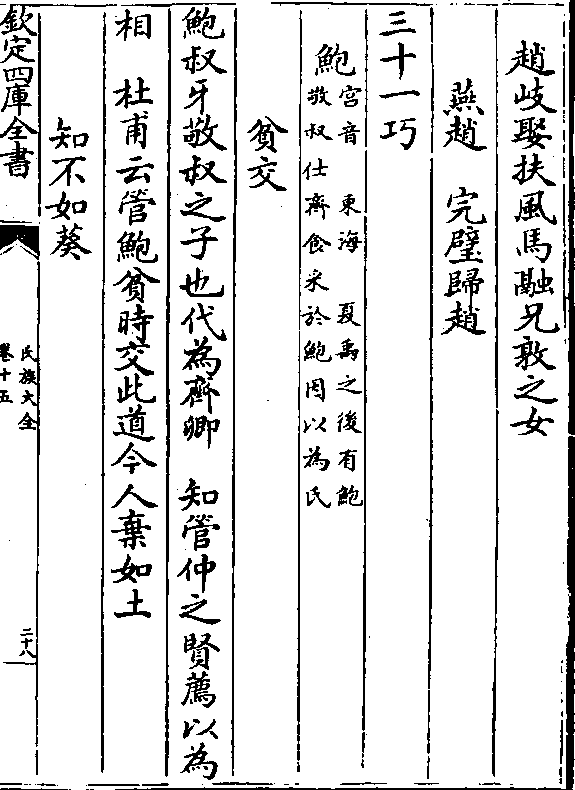 趙岐娶扶風馬融兄敦之女
燕趙　完璧歸趙
三十一巧
鮑
宫音　東海　夏禹之後有鮑
敬叔仕齊食采於鮑因以為氏
貧交
鮑叔牙敬叔之子也代為齊卿　知管仲之賢薦以為
相　杜甫云管鮑貧時交此道今人棄如土
知不如葵
欽定四庫全書
氏族大全
卷十五
二十八